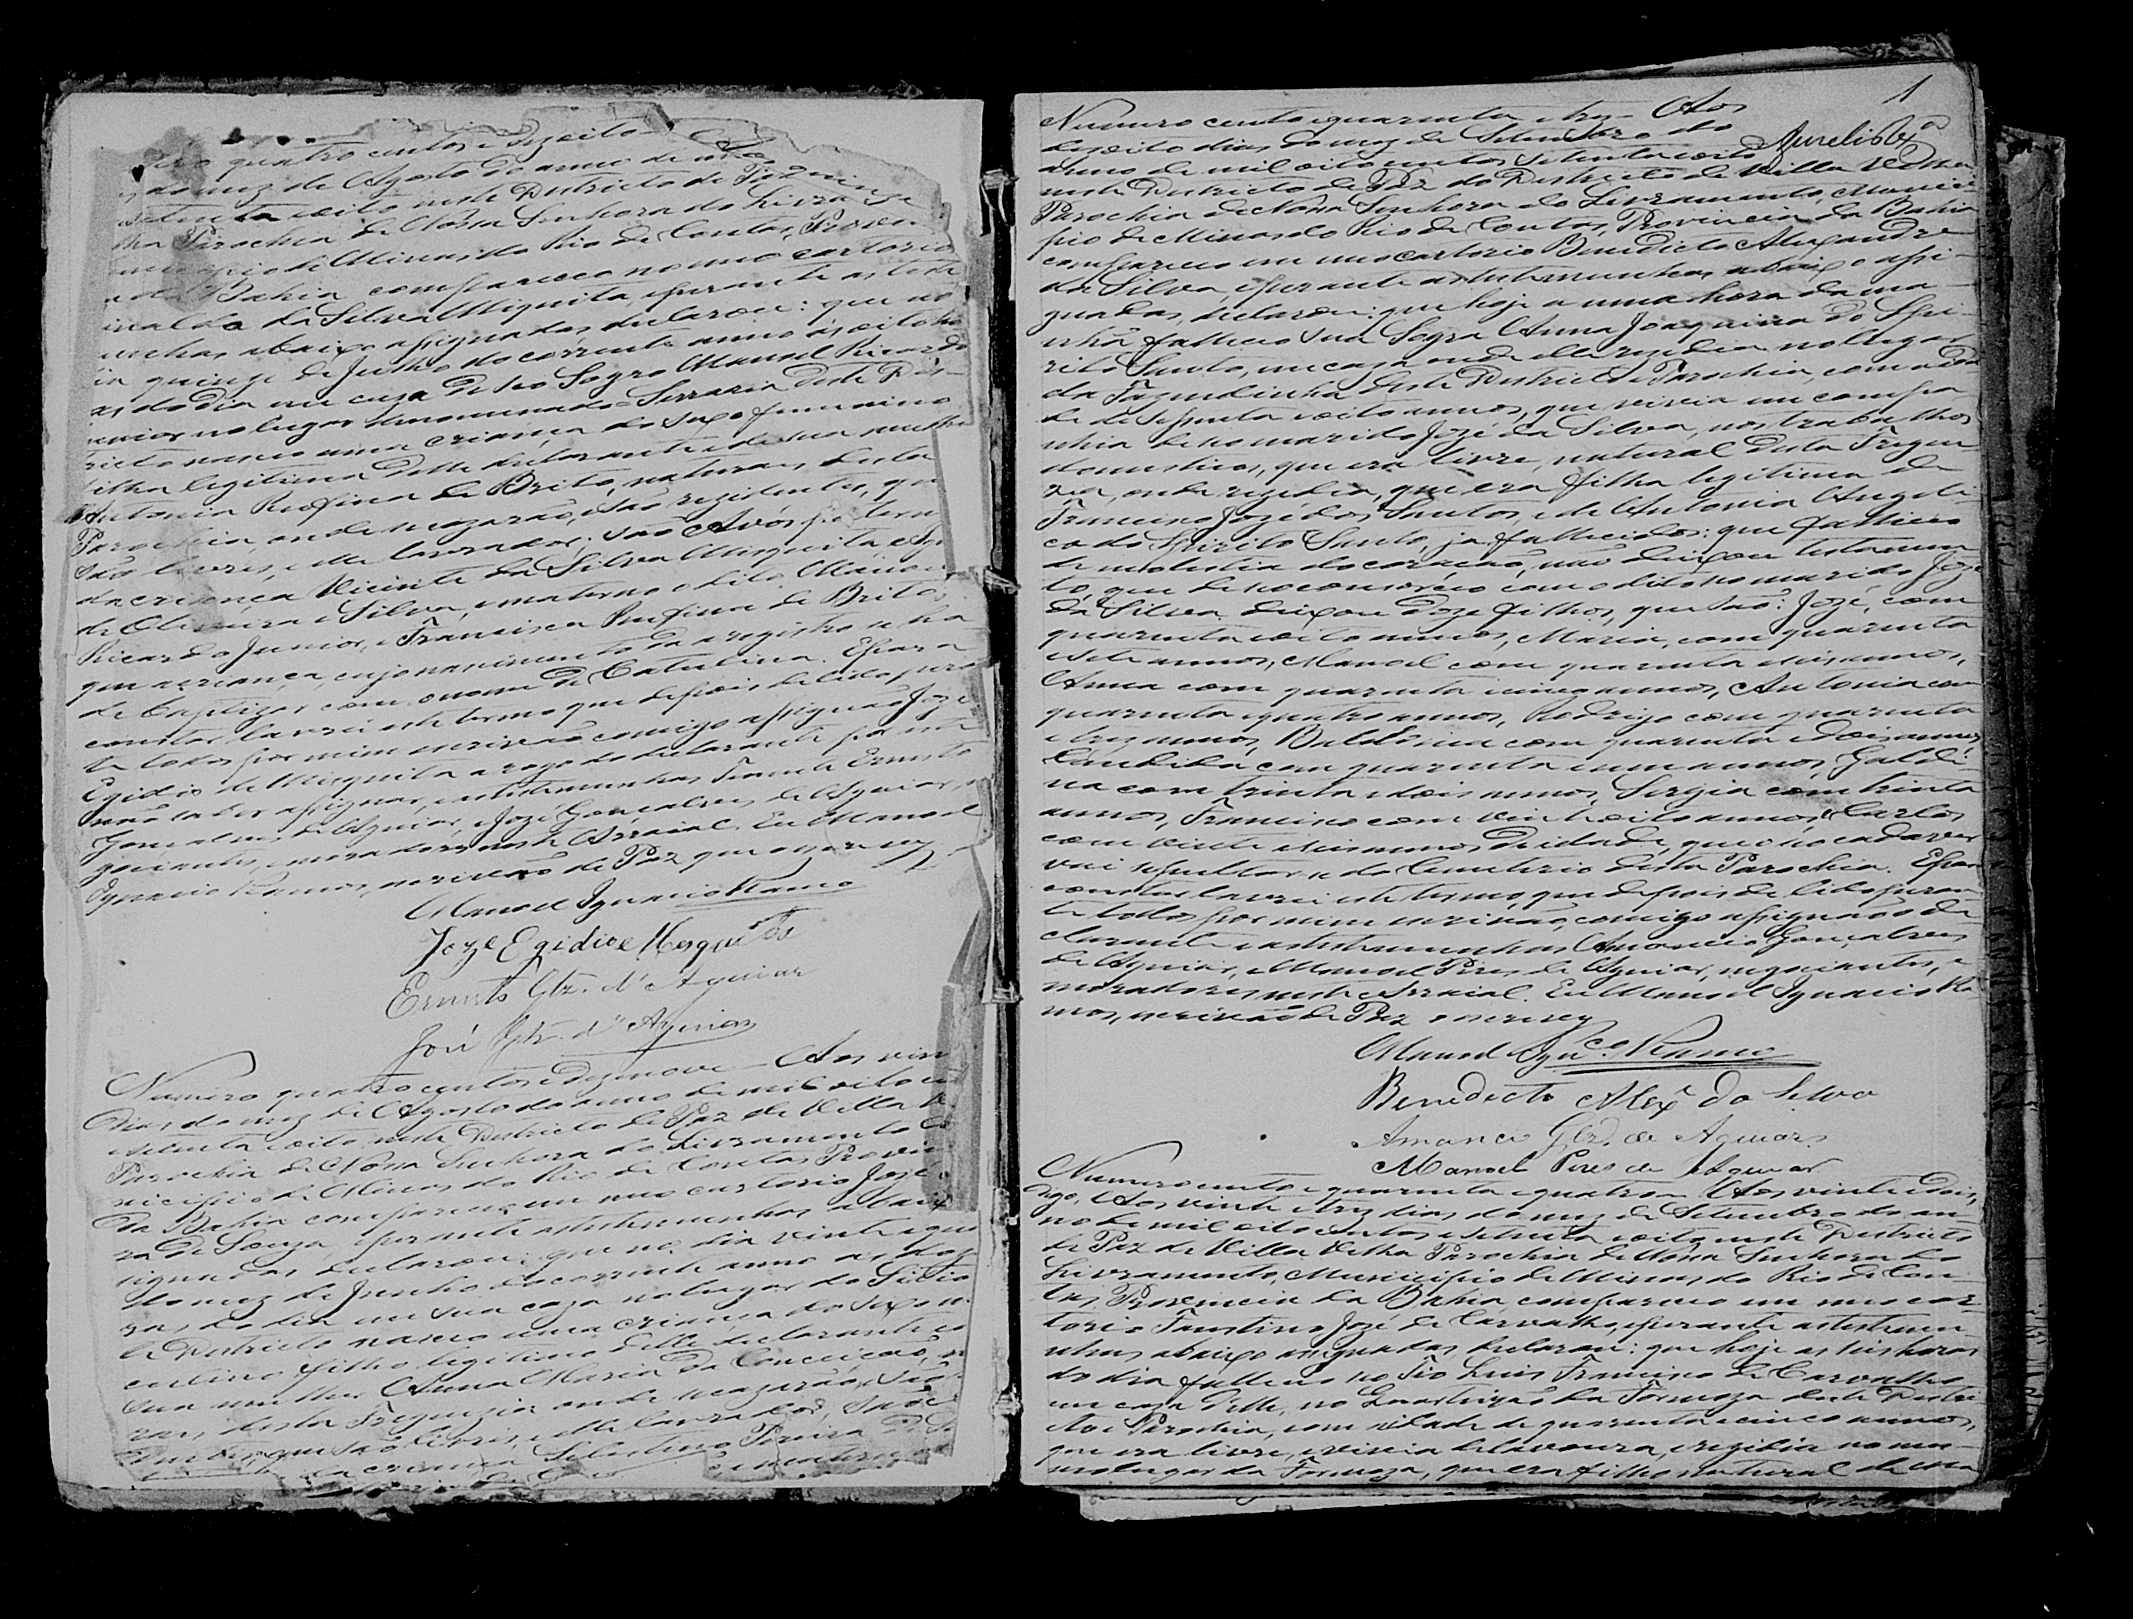 quatro centos e dezoito
do mez de Agosto do anno de
setenta e oito neste Districto de Paz
Parochia de Nossa Senhora do Livra
Minas do Rio de Contas, Provin
Bahia compareceo no meo cartorio
da Silva Misquita, e perante as teste
munhas abaixo assignadas, declarou: que no
dia quinze de Julho do corrente anno ás oito ho
ras do dia em casa de seo Sogro Manoel Ricardo
Junior no lugar denominado Serraria deste Dis
tricto nasceo uma criança do sexo feminino
filha legitima delle declarante e de sua mulher
Antonia Rufina de Brito, naturaes desta
Parochia, onde se cazarão, e são rezidentes, que
são livres, e elle lavrador; são Avós pater
da criança Vicente da Silva Misquita, e
de Oliveira e Silva, e materno o dito Manoel
Ricardo Junior, e Francisca Rufina de Brito
que a criança, cujo nascimento dá a registro se ha
de baptizar com o nome de Catulina. E para
constar lavrei este termo que depois de lido peran
te todos por mim escrivão comigo assignão Joze
Egidio de Misquita a rogo do declarante por
não saber assignar, e as testemunhas Ernesto
Gonçalves de Aguiar, e Jozé Gonçalves de Aguiar, ne
gociantes, e moradores neste Arraial. Eu Manoel
Ignacio Ramos, escrivão de Paz que o escrevy
Manoel Ignacio Ramos
Joze Egidio e Mesquita
Ernesto Glz. d'Aguiar
José Glz. d'Aguiar
Numero quatro centos e dezenove Aos vin
dias do mez de Agosto do anno de mil oito cen
e setenta e oito, neste Districto de Paz de Villa V
Parochia de Nossa Senhora do Livramento
nicipio de Minas do Rio de Contas Provin
da Bahia compareceo em meo cartorio José
ra de Souza, e perante as testemunhas abaix
signadas declarou: que no dia vinte e qua
do mez de Junho do corrente anno as doz
ras do dia em sua caza no lugar do Sitio
te Districto nasceo uma criança do sexo m
culino filho legitimo delle declarante e
sua mulher Anna Maria da Conceição,
raes desta Freguezia onde se cazarão, e são
que são livres, e elle lavrador, são
da criança Selestino Pereira de
1
Aurelio Alx.ª
Numero cento e quarenta e trez Aos
dezoito dias do mez de Setembro do
anno de mil oito centos setenta e oito
neste Districto de Paz do Districto de Villa Velha
Parochia de Nossa Senhora do Livramento, Munici
pio de Minas do Rio de Contas, Provincia da Bahia
compareceo em meo cartorio Benedicto Alexandre
da Silva, e perante as testemunhas abaixo assi
gnadas, declarou: que hoje a uma hora da ma
nhã falleceo sua Sogra Anna Joaquina do Spi
rito Santo, em caza onde ella rezedia no lugar
da Fazendinha deste Districto e Parochia, com a ida
de de sessenta e oito annos, que vivia em compa
nhia de seo marido Jozé da Silva, nos trabalhos
domesticos, que era livre, natural desta Fregue
zia, onde rezedia, que era filha legitima de
Francisco Jozé dos Santos, e de Antonia Angeli
ca do Spirito Santo, ja fallecidos: que falleceo
de molestia do coração, não deixou testamen
to, que de seo consorcio com o dito seo marido Joze
da Silva deixou doze filhos, que são: Jozé, com
quarenta e oito annos, Maria, com quarenta
e sete annos, Manoel com quarenta e seis annos,
Anna com quarenta e cinco annos, Antonia com
quarenta e quatro annos, Rodrigo com quarenta
e trez annos, Baldoina com quarenta e dois annos,
Candida com quarenta e um annos, Galdi
na com trinta e dois annos, Sergia com trinta
annos, Francisco com vinte e oito annos, e Carlos
com vinte e seis annos de idade, que o seo cadaver
vai sepultar-se do Cemiterio desta Parochia. E para
constar lavrei este termo, que depois de lido peran
te todos por mim escrivão, comigo assignão o de
clarante e as testemunhas Amancio Gonçalves
de Aguiar, e Manoel Pires de Aguiar, negociantes, e
moradores neste Arraial. Eu Manoel Ignacio Ra
mos, escrivão de Paz o escrevy
Manoel Ign.co Ramos
Benedicto Alex.e da Silva
Amancio Glz. de Aguiar
Manoel Pires de Aguiar
Numero cento e quarenta e quatro Aos vinte e dois,
digo, Aos vinte e trez dias do mez de Setembro do an
no de mil oito centos e setenta e oito neste Districto
de Paz de Villa Velha Parochia de Nossa Senhora do
Livramento, Municipio de Minas do Rio de Con
tas, Provincia da Bahia, compareceo em meo car
torio Faustino Jozé de Carvalho, e perante as testemu
nhas abaixo assignadas declarou: que hoje as seis horas
do dia falleceo seo Tio Luis Francisco de Carvalho
em caza delle, no Quarteirão da Formoza deste Distri
cto e Parochia, com idade de quarenta e cinco annos,
que era livre, e vivia de lavoura, e rezidia no mes
mo lugar da Formoza, que era filho natural de